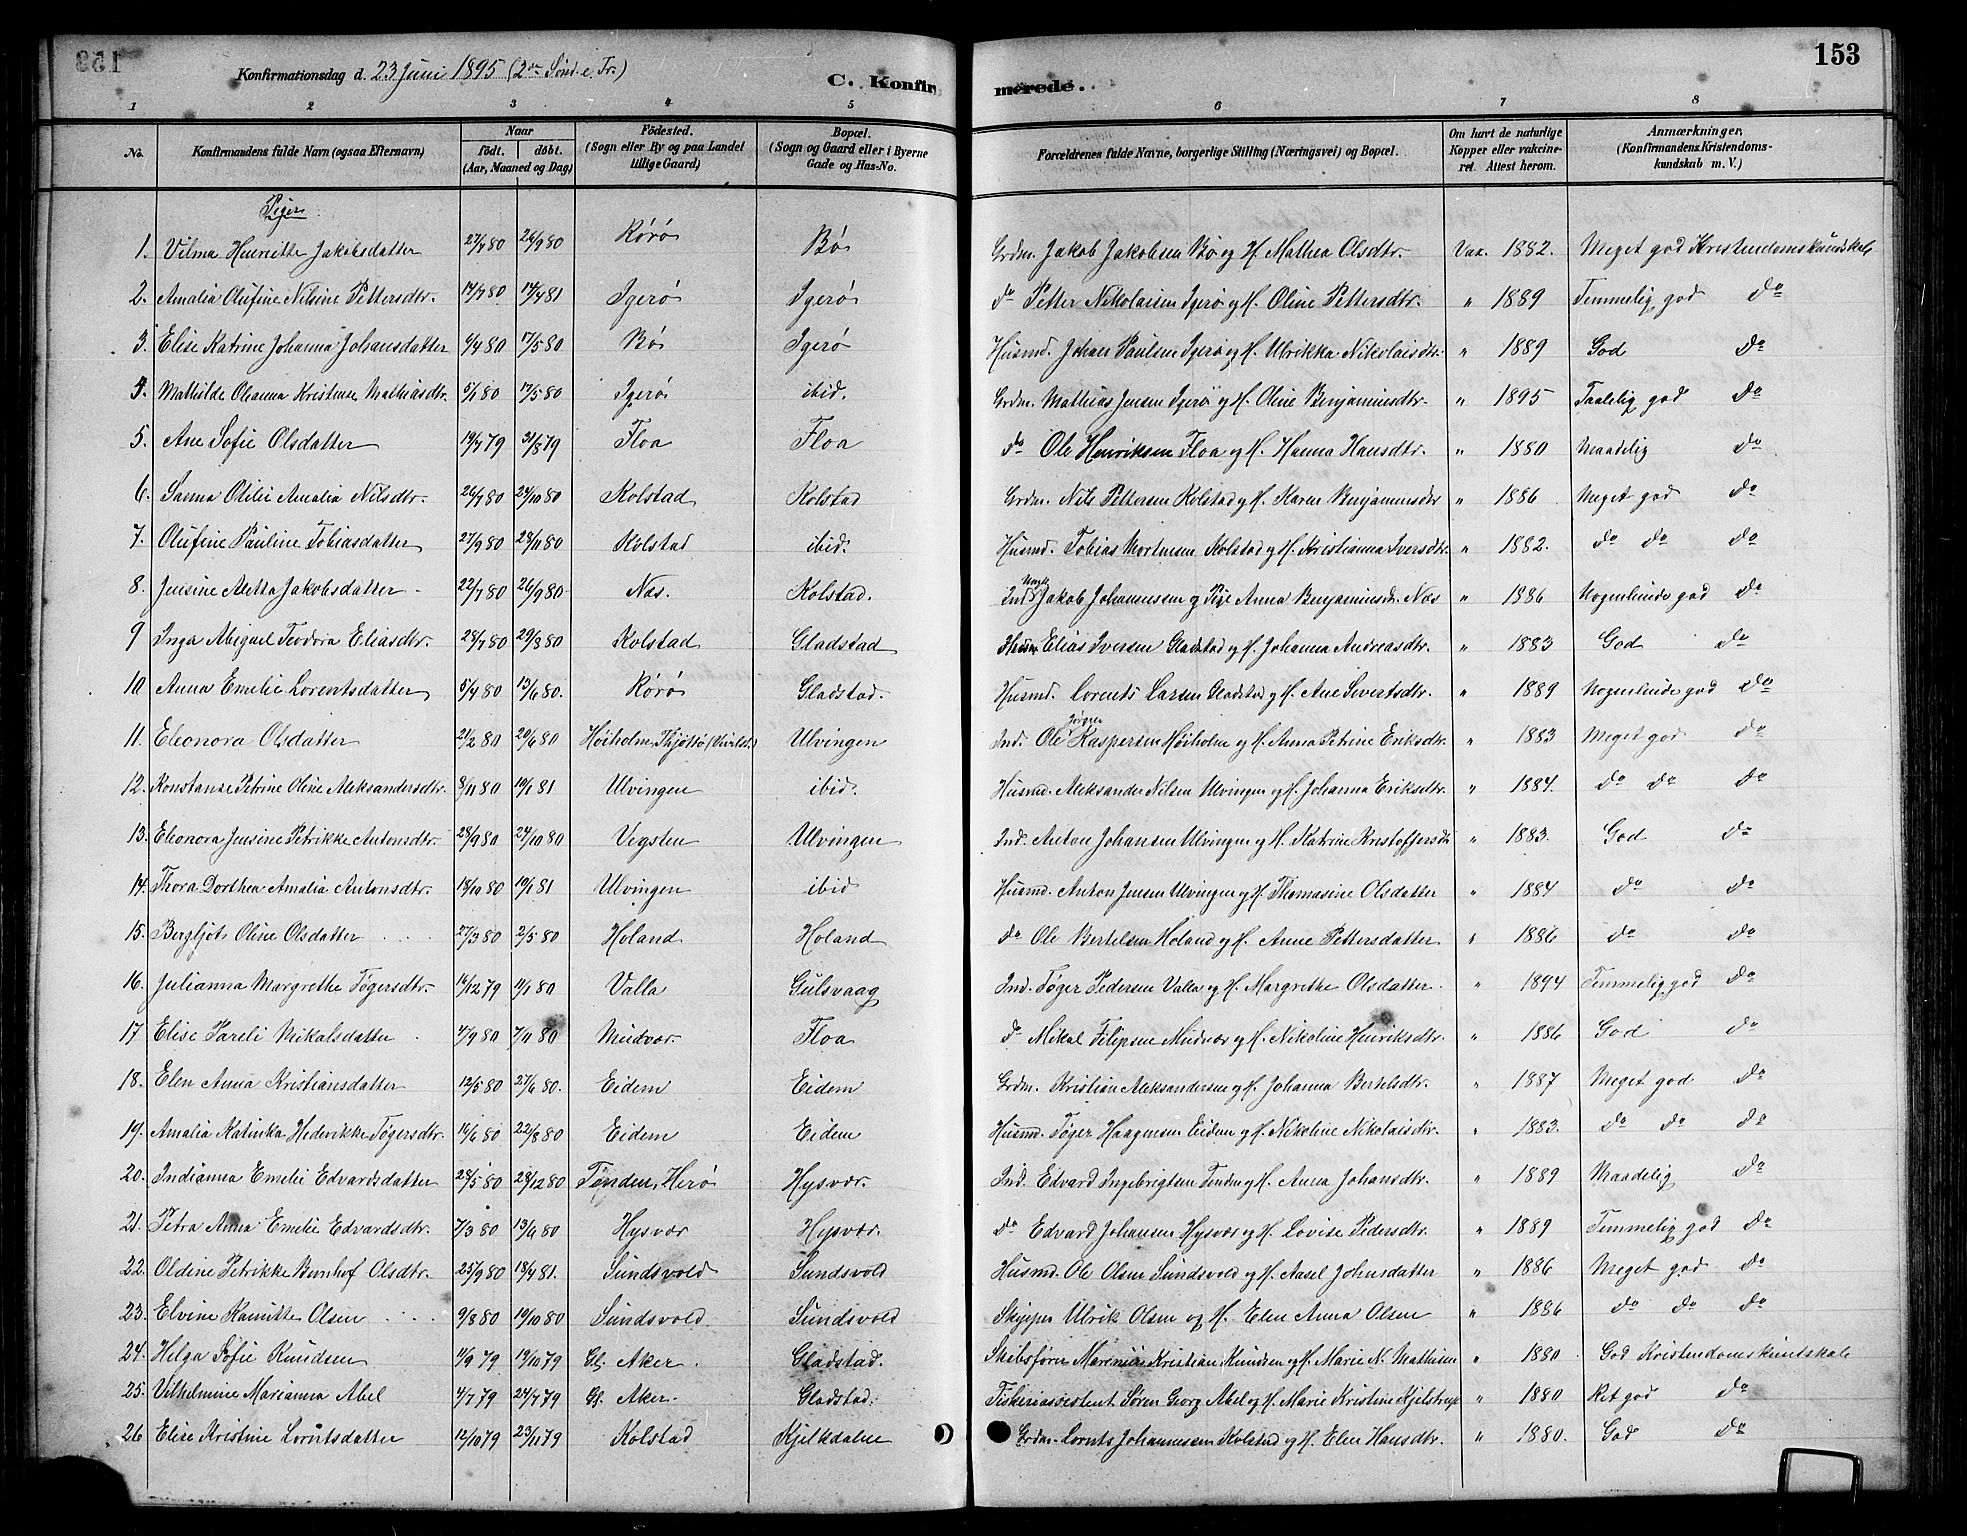 153
Konfirmationsdag d. 23 Juni 1895 (2den Sønd. e. Tr.)
C. Konfirmerede.
1 2 3 4 5 6 7 8
No. Konfirmandens fulde Navn (ogsaa Efternavn) Naar födt. döbt. (Aar, Maaned og Dag) Födested. (Sogn eller By og paa Landet tillige Gaard) Bopæl. (Sogn og Gaard eller i Byerne Gade og Hus-No. Forældrenes fulde Navne, borgerlige Stilling (Næringsvei) og Bopæl. Om havt de naturlige Kopper eller vakcineret. Attest herom. Anmærkninger, (Konfirmandens Kristendomskundskab m. V.)
Piger
1. Vilma Henriette Jakobsdatter 27/7 80 26/9 80 Rørø Bø Grdm. Jakob Jakobsen Bø og H. Mathea Olsdtr. Vax. 1882. Meget god Kristendomskundskab
2. Amalia Olufine Nilsine Pettersdtr. 14/7 80 14/4 81 Igerø Igerø do Petter Nikolaisen Igerø og H. Oline Pettersdtr. " 1889 Temmelig god do
3. Elise Katrine Johanna Johansdatter 9/4 80 17/5 80 Bø Igerø Husmd. Johan Paulsen Igerø og H. Ulrikka Nikolaisdtr. " 1889 God do
4. Mathilde Oleanna Kristine Mathiasdtr. 5/1 80 17/5 80 Igerø ibid. Grdm. Mathias Jensen Igerø og H. Oline Benjaminsdtr. " 1895 Taalelig god do
5. Ane Sofie Olsdatter 19/7 79 31/8 79 Floa Floa do Ole Henriksen Floa og H. Hanna Hansdtr. " 1880 Maadelig do
6. Sanna Otilie Amalia Nilsdtr. 26/7 80 24/10 80 Kolstad Kolstad Grdm. Nils Pettersen Kolstad og H. Karen Benjaminsdtr " 1886 Meget god do
7. Olufine Pauline Tobiasdatter 27/9 80 28/11 80 Kolstad ibid. Husmd. Tobias Mortensen Kolstad og H. Kristianna Iversdtr. " 1882. do do do
8. Jensine Aletta Jakobsdatter 22/7 80 26/9 80 Næs. Kolstad. Ind. Jakob Johannesen og Pige Anna Benjaminsd. Næs " 1886 Nogenlunde god do
9 Inga Abigael Teodora Eliasdtr. 28/7 80 29/8 80 Kolstad Gladstad Husm Elias Iversen Gladstad og H. Johanna Andreasdtr. " 1883 God do
10 Anna Emelie Lorentsdatter 5/4 80 13/6 80. Rørø Gladstad. Husmd. Lorents Larsen Gladstad og H. Ane Sivertsdtr. " 1889 Nogenlunde god do
11. Eleonora Olsdatter 21/2 80 20/6 80 Høiholm, Thjøttø Ulvingen Ind. Ole Jørgen Kaspersen Høiholm og H. Anna Petrine Eriksdtr. " 1883 Meget god do
12. Konstanse Petrine Oline Aleksandersdtr. 8/11 80 19/1 81 Ulvingen ibid. Husmd. Aleksander Nilsen Ulvingen og H. Johanna Eriksdtr. " 1884. do do do
13. Eleonora Jensine Petrikke Antonsdtr. 28/9 80 24/10 80 Vegsten Ulvingen Ind. Anton Johansen Ulvingen og H. Katrine Kristoffersdtr " 1883. God do
14. Thora Dorthea Amalia Antonsdtr. 18/10 80 19/1 81 Ulvingen ibid Husmd. Anton Jensen Ulvingen og H. Thomasine Olsdatter " 1884 do do
15. Bergljot Oline Olsdatter 27/3 80 2/5 80 Holand Holand do Ole Bertelsen Holand og H. Anne Pettersdatter " 1886 do do
16. Julianna Margrethe Tøgersdtr. 16/12 79 11/1 80 Valla Gulsvaag Ind. Tøger Pedersen Valla og H. Margrethe Olsdatter. " 1894 Temmelig god do
17 Elise Pareli Mikalsdatter 4/9 80 7/11 80 Mudvær. Floa do Mikal Filipsen Mudvær og H. Nikoline Henriksdtr. " 1886 God do
18. Elen Anna Kristiansdatter 12/5 80 27/6 80. Eidem Eidem Grdm. Kristian Aleksandersen og H. Johanna Bertelsdtr. " 1887 Meget god do
19. Amalia Katinka Hedevikke Tøgersdtr. 16/6 80 22/8 80 Eidem Eidem Husmd. Tøger Haagensen Eidem og H. Nikoline Nikolaisdtr. " 1883. do do do
20. Indianna Emelie Edvardsdatter 28/5 80 28/12 80 Tenden, Herø Hysvær. Ind. Edvard Ingebrigtsen Tenden og H. Anna Johansdtr. " 1889 Maadelig do
21. Petra Anna Emelie Edvardsdtr. 7/3 80 13/9 80 Hysvær Hysvær. do Edvard Johansen Hysvær og H. Lovise Pedersdtr. " 1889 Temmelig god do
22. Oldine Petrikke Bernhof Olsdtr. 25/9 80 18/4 81. Sundsvold Sundsvold Husmd. Ole Olsen Sundsvold og H. Aasel Johnsdatter " 1886 Meget god do
23. Elvine Kamitte Olsen 9/8 80 19/10 80 Sundsvold Sundsvold Skipper Ulrik Olsen og H. Elen Anna Olsen " 1886 do do do
24. Helga Sofie Knudsen 11/9 79 19/10 79 Gl. Aker Gladstad. Skibsfører Marenius Kristian Knudsen og H. Marie N. Mathisen " 1880 God Kristendomskundskab
25. Vilhelmine Marianna Abel 4/7 79 24/7 79 Gl. Aker. Gladstad. Fiskeriassistent Søren Georg Abel og H. Marie Kristine Kjelstrup " 1880 Ret god do
26 Elise Kristine Lorntsdatter 12/10 79 23/11 79 Kolstad Kjilkdalen Grdm. Lornts Johannesen Kolstad og H. Elen Hansdtr. " 1880. God do